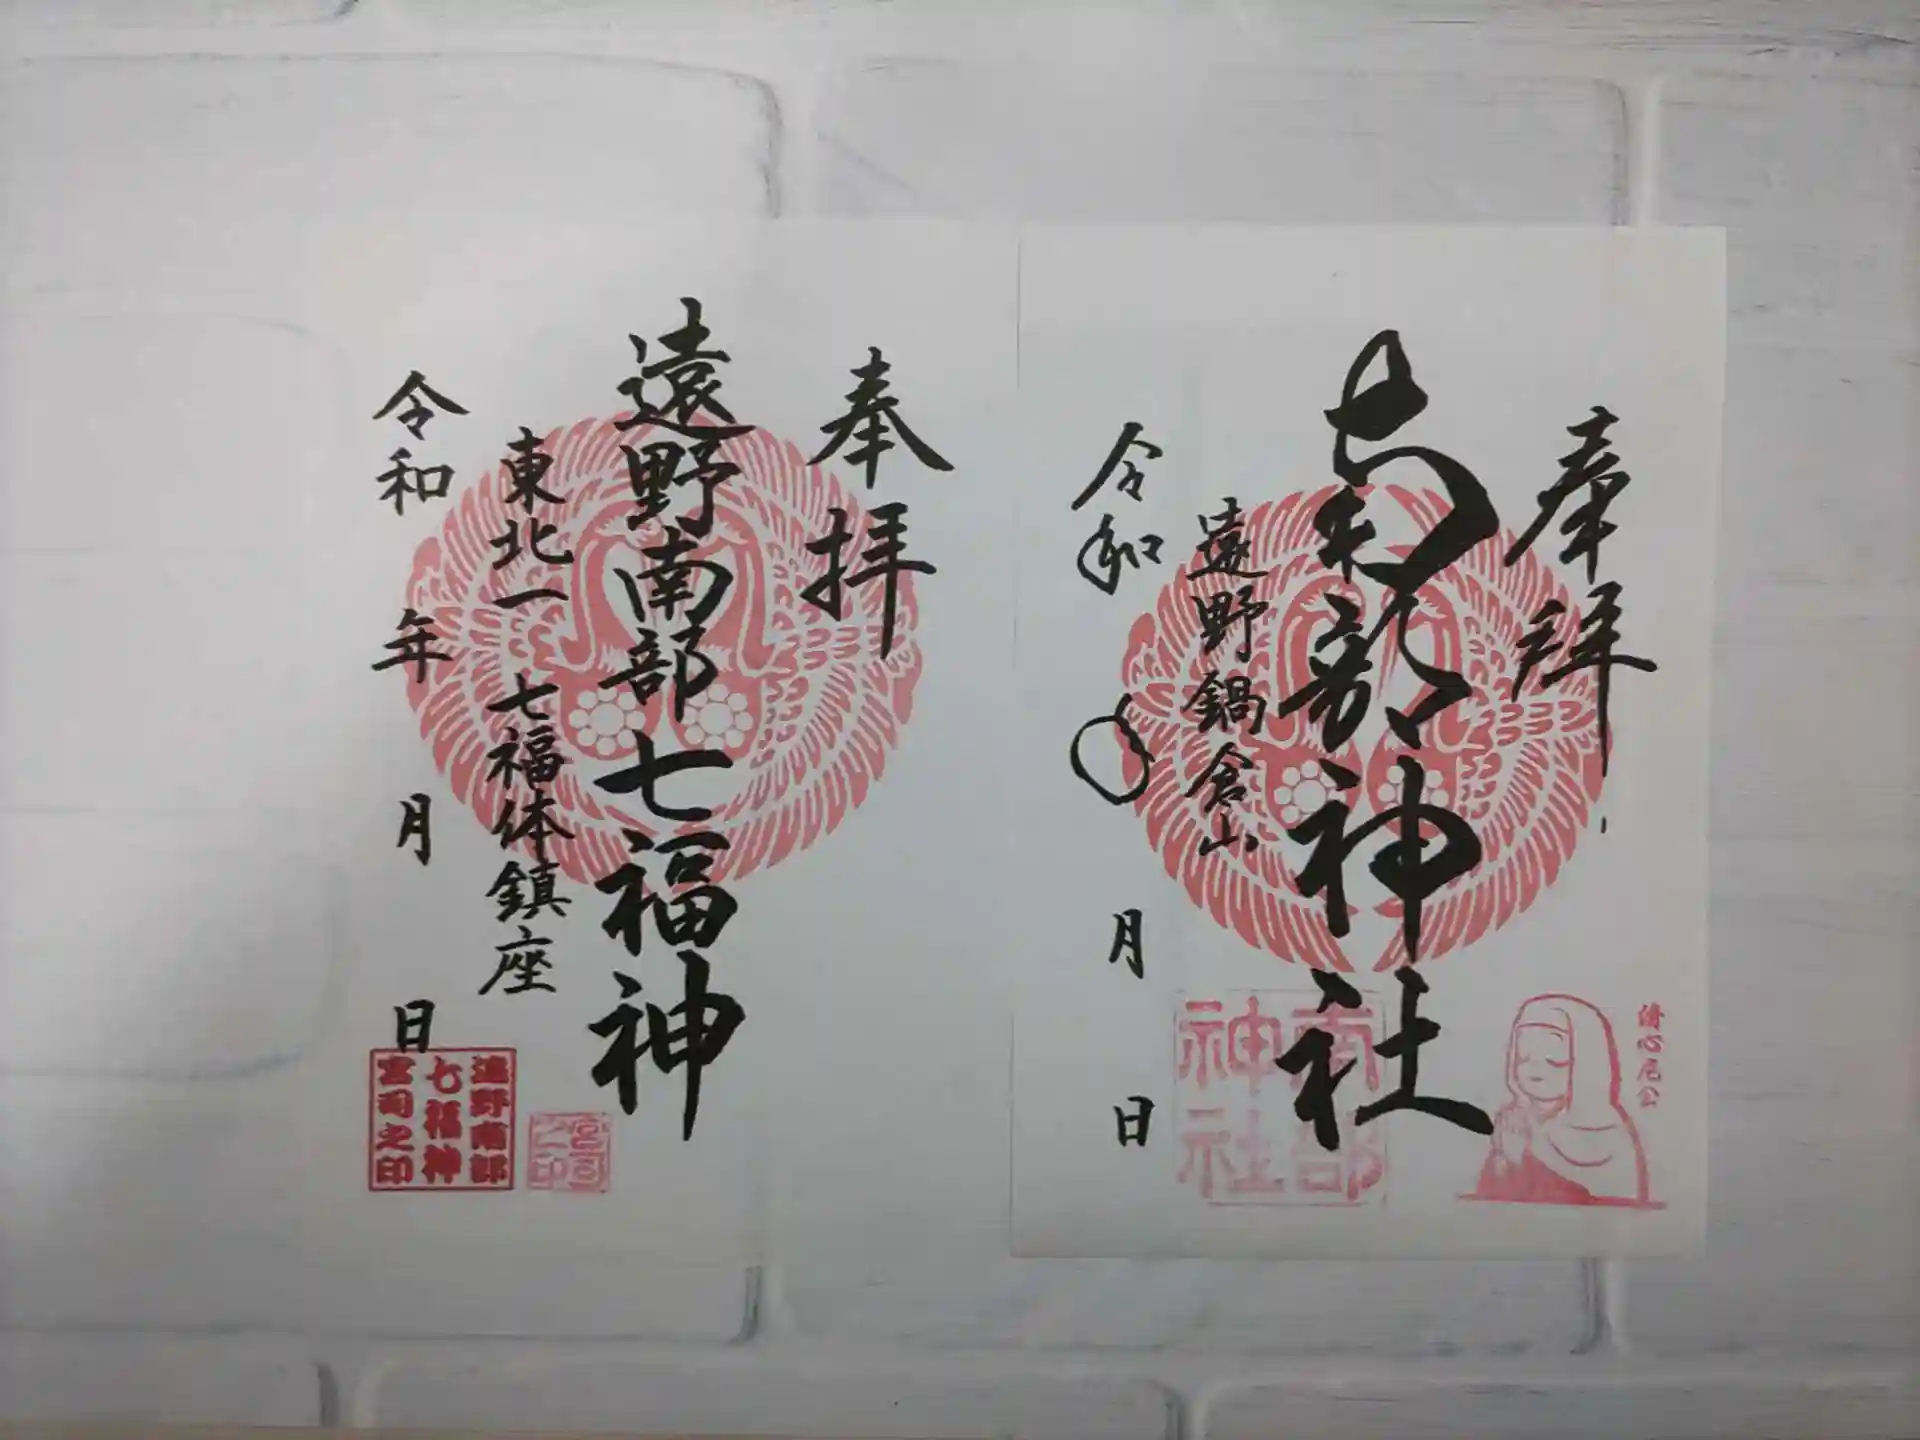 奉拝
南部神社
遠野鍋倉山
令和 年 月 日
南部
神社
清心尼公
奉拝
遠野南部七福神
東北一 七福体鎮座
令和 年 月 日
遠野南部
七福神
宮司之印
宮司
之印